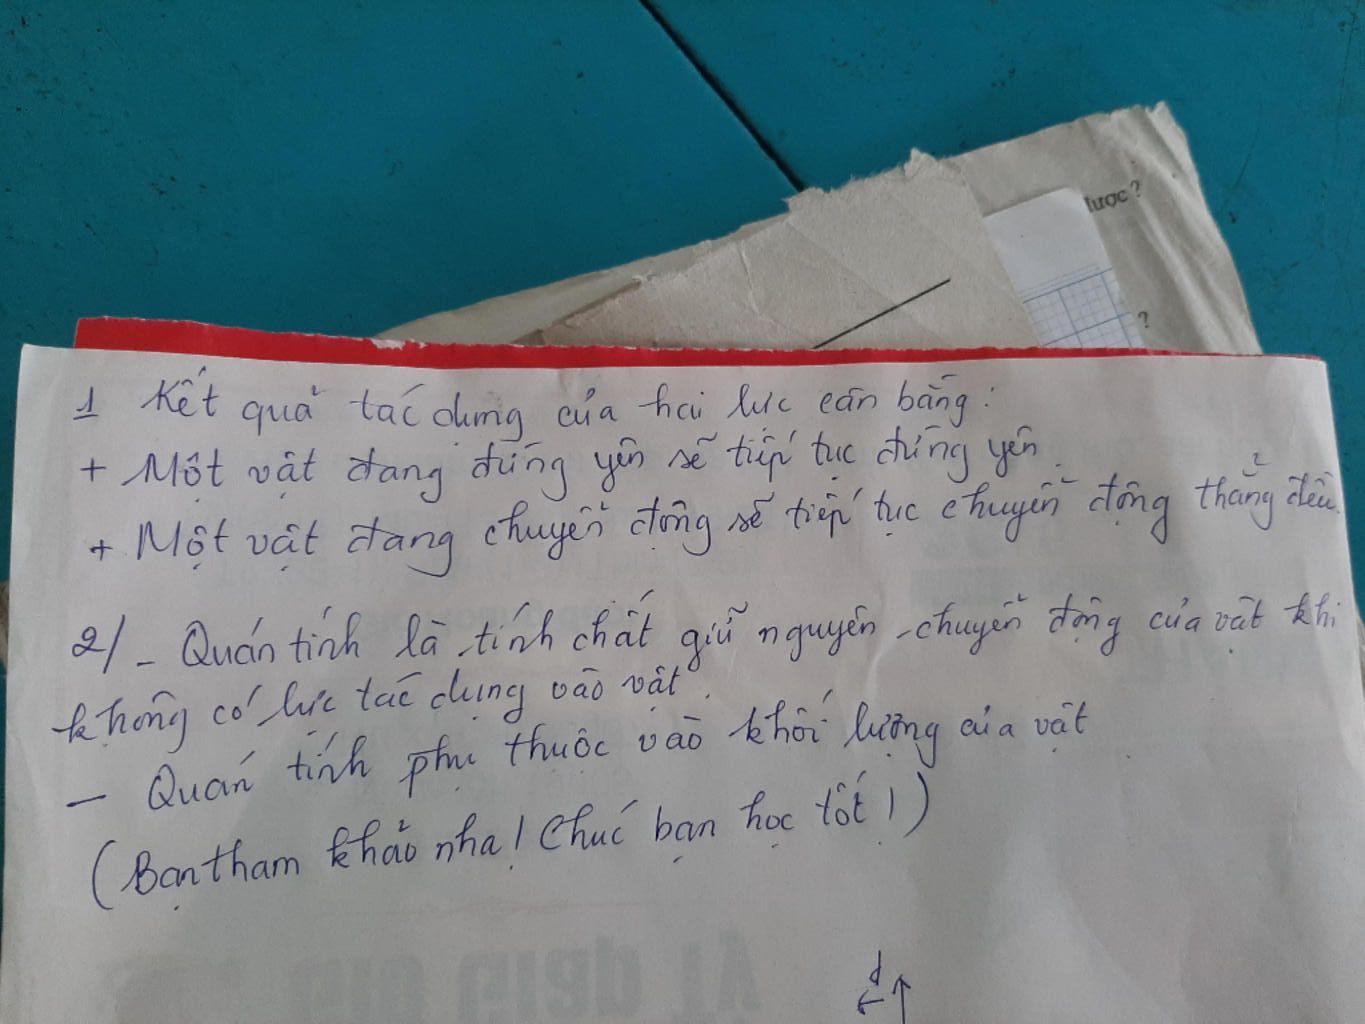 lược ?
?
1 Kết quả tác dụng của hai lực cân bằng:
+ Một vật đang đứng yên sẽ tiếp tục đứng yên.
+ Một vật đang chuyển động sẽ tiếp tục chuyển động thẳng đều.
2/ - Quán tính là tính chất giữ nguyên chuyển động của vật khi
không có lực tác dụng vào vật.
- Quán tính phụ thuộc vào khối lượng của vật
(Bạn tham khảo nha! Chúc bạn học tốt!)
d